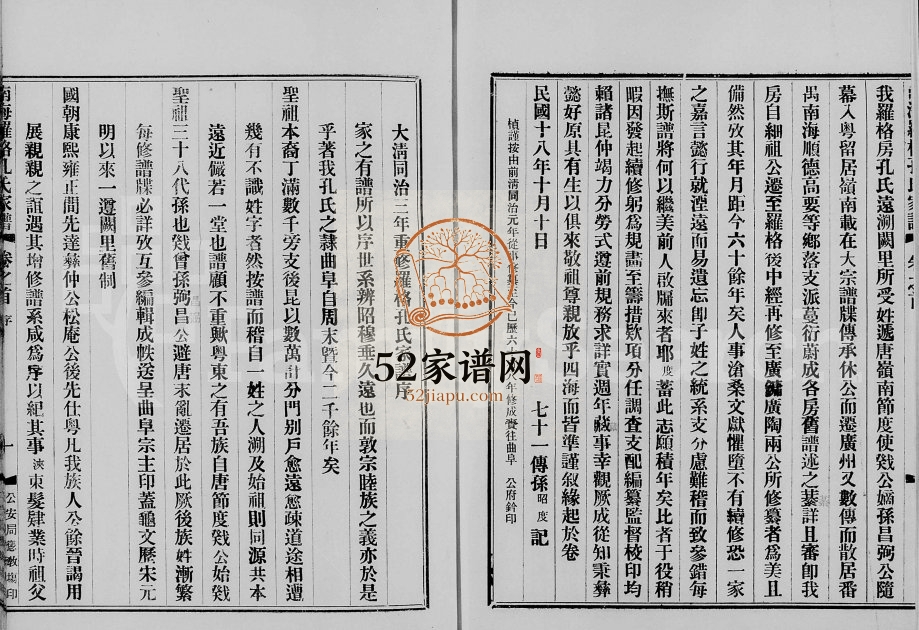 我羅格房孔氏遠溯闕里所受姓遞唐嶺南節度使戣公嫡孫昌弼公隨
幕入粵留居嶺南載在大宗譜牒傳承休公而遷廣州又數傳而散居番
禺南海順德高要等鄉落支派蔓衍蔚成各房舊譜述之綦詳且審卽我
房自細祖公遷至羅格後中經再修至廣鏞廣陶兩公所修纂者為美且
備然攷其年月距今六十餘年矣人事滄桑文獻懼墮不有續修恐一家
之嘉言懿行就湮遠而易遺忘卽子姓之統系支分慮難稽而致參錯每
撫斯譜將何以繼美前人啟牖來者耶度蓄此志願積年矣比者于役稍
暇因發起續修躬為規畫至籌措欵項分任調查支配編纂監督校印均
賴諸昆仲竭力分勞式遵前規務求詳實週年蕆事幸觀厥成從知秉彝
懿好原具有生以俱來敬祖尊親放乎四海而皆準謹叙緣起於卷
民國十八年十月十日 七十一傳孫昭度記
楨謹按由前清同治元年從事 今已歷六 年修成賫往曲阜 公府鈐印
大清同治三年重修羅格孔氏家譜序
家之有譜所以序世系辨昭穆垂久遠也而敦宗睦族之義亦於是
乎著我孔氏之隸曲阜自周末曁今二千餘年矣
聖祖本裔丁滿數千旁支後昆以數萬計分門別戶愈遠愈疎道途相遭
幾有不識姓字者然按譜而稽自一姓之人溯及始祖則同源共本
遠近儼若一堂也譜顧不重歟粵東之有吾族自唐節度戣公始戣
聖祖三十八代孫也戣曾孫弼昌公避唐末亂遷居於此厥後族姓漸繁
每修譜牒必詳攷互參編輯成帙送呈曲阜宗主印蓋龜文歷朱元
明以來一遵闕里舊制
國朝康熙雍正間先達彝仲公松庵公後先仕粵凡我族人公餘晉謁用
展親親之誼遇其增修譜系咸為序以紀其事 束髮肄業時祖父
南海羅格孔氏家譜 卷之首 序 一
52家谱网
52jiapu.com